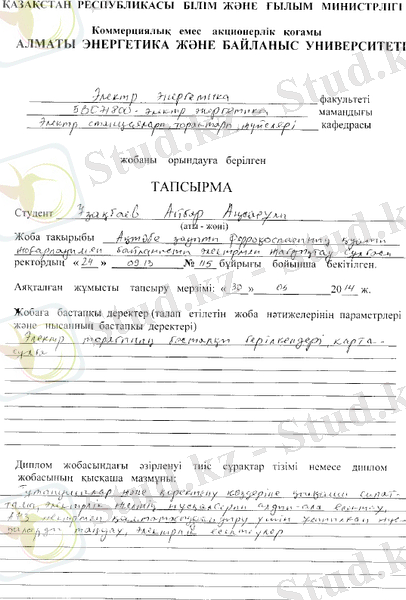 ҚАЗАҚСТАН РЕСПУБЛИКАСЫ БІЛІМ ЖӘНЕ ҒЫЛЫМ МИНИСТРЛІГІ
Коммерциялық емес акционерлік қоғамы
АЛМАТЫ ЭНЕРГЕТИКА ЖӘНЕ БАЙЛАНЫС УНИВЕРСИТЕТІ
Электр энергетика факультеті
5В071800 - электр энергетика мамандығы
Электр станциялары, тораптары жүйелері кафедрасы
жобаны орындауға берілген
ТАПСЫРМА
Студент Айбар
(аты - жөні)
Жоба тақырыбы Ақтөбе зауыты
байланысты
ректордың «24» 09.13 № 115 бұйрығы бойынша бекітілген.
Аяқталған жұмысты тапсыру мерзімі: «30» 05 2014 ж.
Жобаға бастапқы деректер (талап етілетін жоба нәтижелерінің параметрлері
және нысанның бастапқы деректері)
Электр торабының бастапқы берілгендері, карта-
сулы
Диплом жобасындағы әзірленуі тиіс сұрақтар тізімі немесе диплом
жобасының қысқаша мазмұны:
Тұтынушылар және қоректену көздеріне
электрлік желінің алдын-ала
үшін
таңдау, электрлік есептеулер
Stud.kz
Stud.kz - Stud.kz
Stud.kz
Stud.kz - Stud.kz